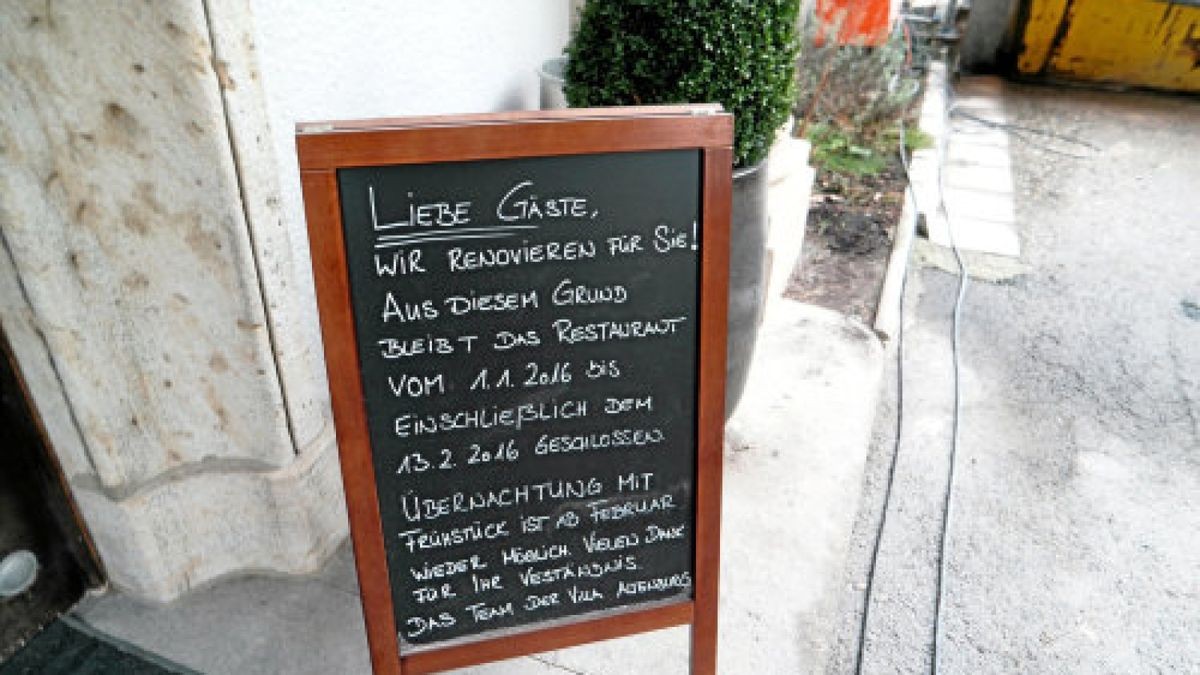 LIEBE GÄSTE,
WIR RENOVIEREN FÜR SIE!
AUS DIESEM GRUND
BLEIBT DAS RESTAURANT
VOM 1.1. 2016 BIS
EINSCHLIEßLICH DEM
13.2. 2016 GESCHLOSSEN.
ÜBERNACHTUNG MIT
FRÜHSTÜCK IST AB FEBRUAR
WIEDER MÖGLICH. VIELEN DANK
FÜR IHR VESTÄNDNIS.
DAS TEAM DER VILLA ALTENBURG